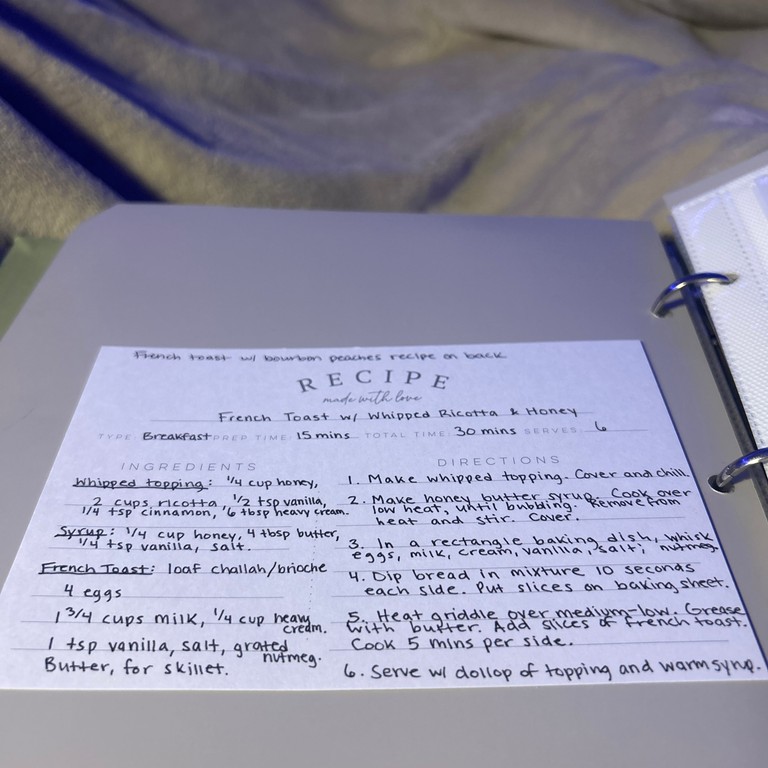 French toast w/ bourbon peaches recipe on back
RECIPE
made with love
French Toast w/ Whipped Ricotta & Honey
TYPE: Breakfast PREP TIME: 15 mins TOTAL TIME: 30 mins SERVES: 6
INGREDIENTS
Whipped topping: 1/4 cup honey,
2 cups ricotta, 1/2 tsp vanilla,
1/4 tsp cinnamon, 6 tbsp heavy cream.
Syrup: 1/4 cup honey, 4 tbsp butter,
1/4 tsp vanilla, salt.
French Toast: loaf challah/brioche
4 eggs
1 3/4 cups milk, 1/4 cup heavy
cream.
1 tsp vanilla, salt, grated
nutmeg.
Butter, for skillet.
DIRECTIONS
1. Make whipped topping. Cover and chill.
2. Make honey butter syrup. Cook over
low heat, until bubbling. Remove from
heat and stir. Cover.
3. In a rectangle baking dish, whisk
eggs, milk, cream, vanilla, salt, nutmeg.
4. Dip bread in mixture 10 seconds
each side. Put slices on baking sheet.
5. Heat griddle over medium-low. Grease
with butter. Add slices of french toast.
Cook 5 mins per side.
6. Serve w/ dollop of topping and warm syrup.